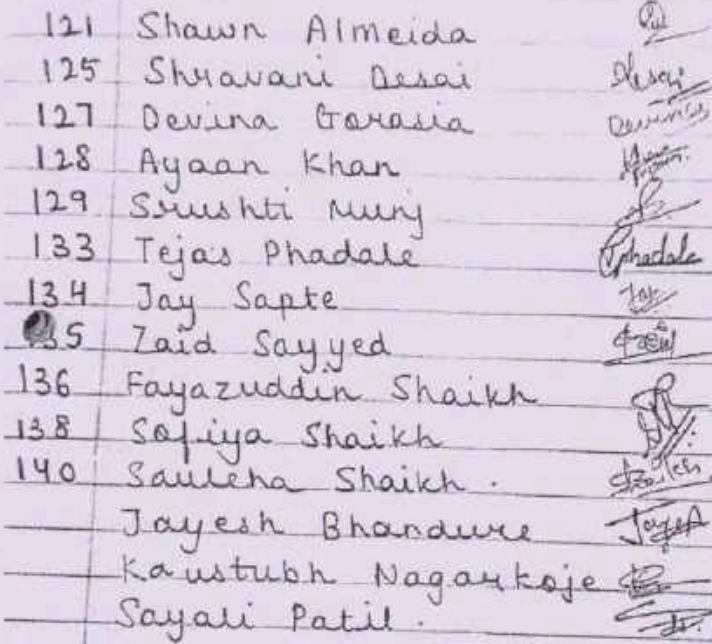 121 Shawn Almeida
125 Shravani Desai Desai
127 Devina Gorasia Devina
128 Ayaan Khan
129 Srushti Munj
133 Tejas Phadale Tphadale
134 Jay Sapte Jay
135 Zaid Sayyed
136 Fayazuddin Shaikh
138 Sofiya Shaikh
140 Sauleha Shaikh .
Jayesh Bhandure
Kaustubh Nagarkoje
Sayali Patil .